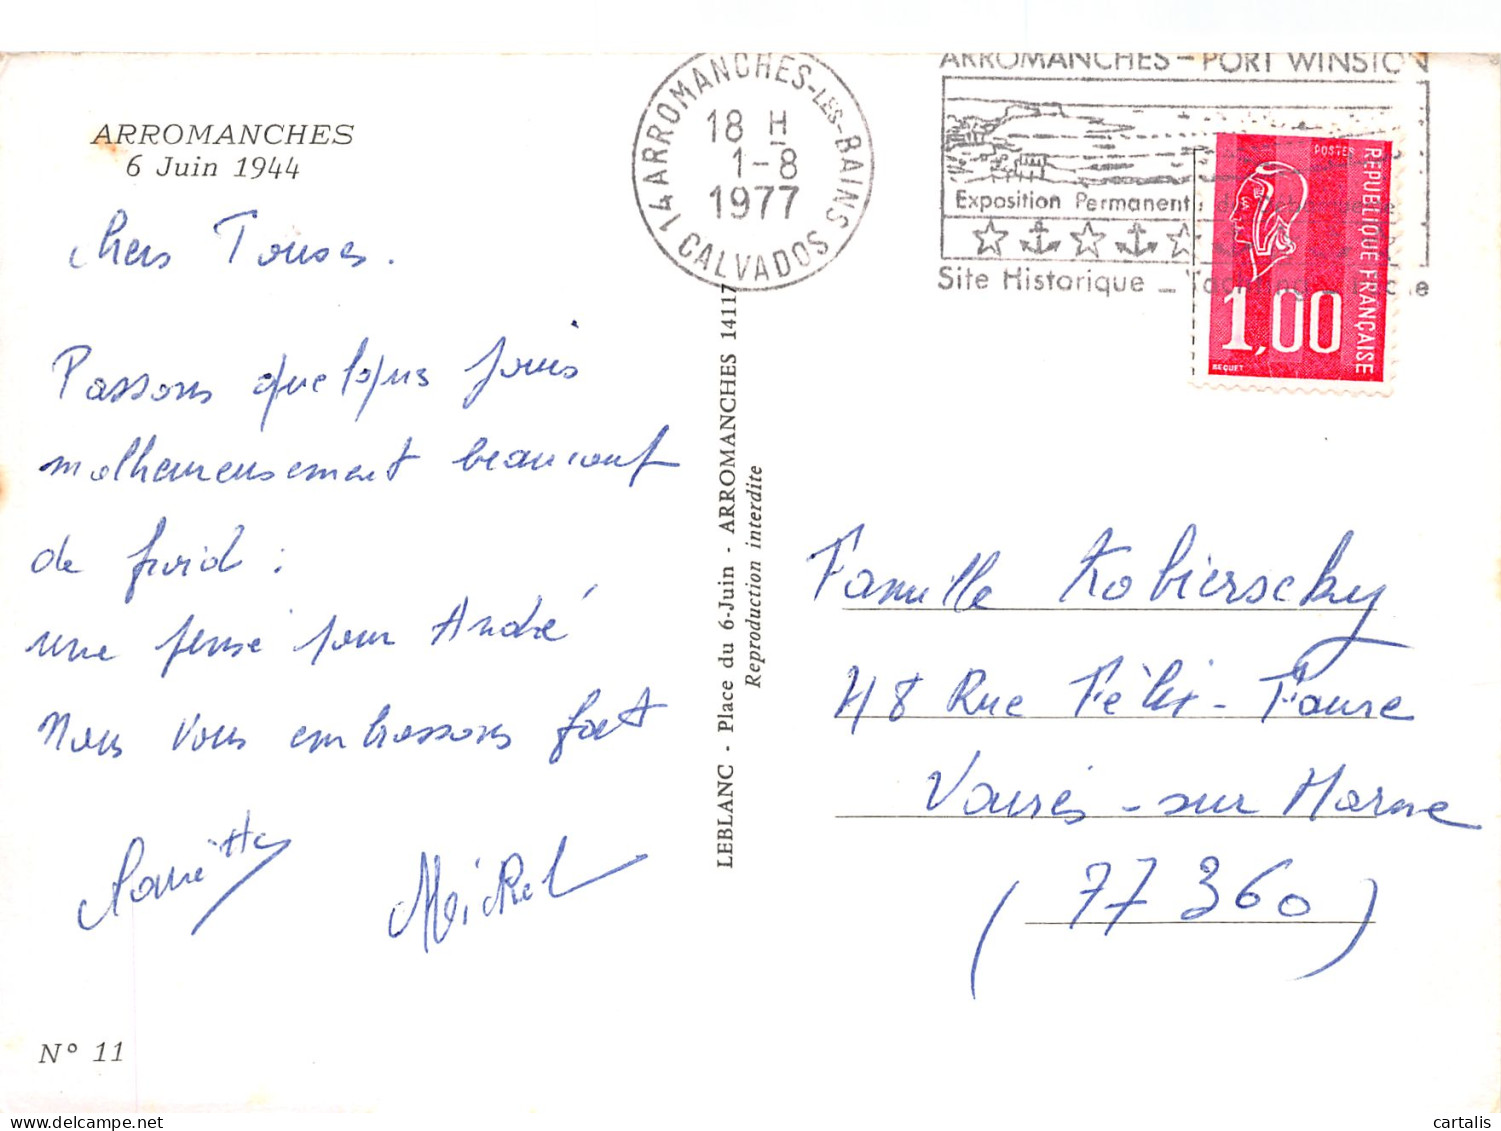 ARROMANCHES
6 Juin 1944
chers Tous.
Passons quelques jours
malheureusement beaucoup
de froid :
une pensé pour André
Nous vous embrassons fort
Michel
N° 11
LEBLANC - Place du 6-Juin - ARROMANCHES 14117
Reproduction interdite
14 ARROMANCHES-LES-BAINS
18 H
1-8
1977
CALVADOS
ARROMANCHES - PORT WINSTON
Exposition Permanente du
Site Historique _ Yachting
POSTES
REPUBLIQUE FRANÇAISE
1,00
BEQUET
Famille Kobierscky
48 Rue Félix-Faure
Vaires-sur Marne
(77 360)